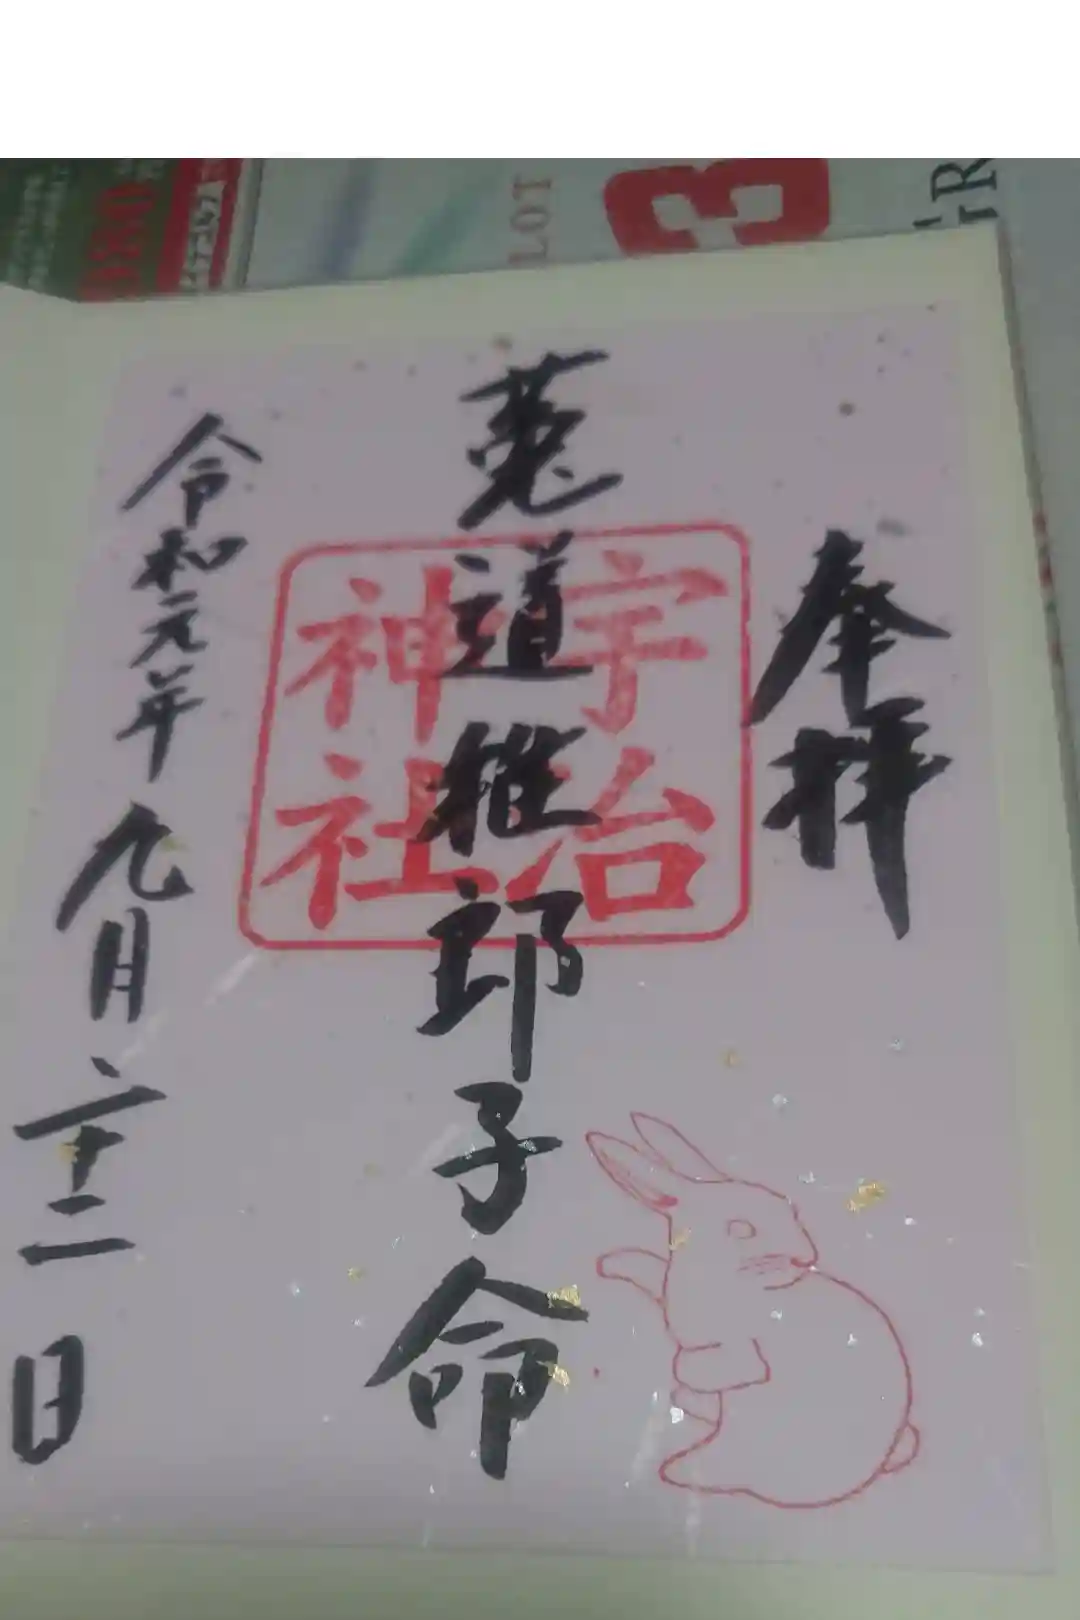 奉拝
菟道稚郎子命
宇治
神社
令和元年九月二十二日
LOT
3